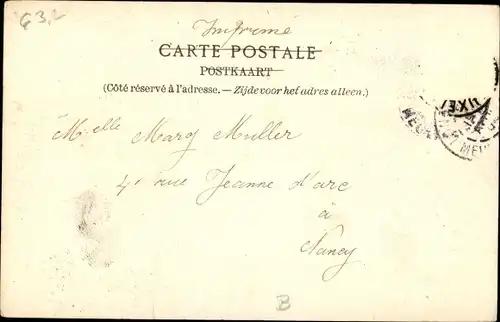 G3,-
Imprimé
CARTE POSTALE
POSTKAART
(Côté réservé à l'adresse. — Zijde voor het adres alleen.)
Melle Marg Muller
4, rue Jeanne d'arc
à
Nancy
B